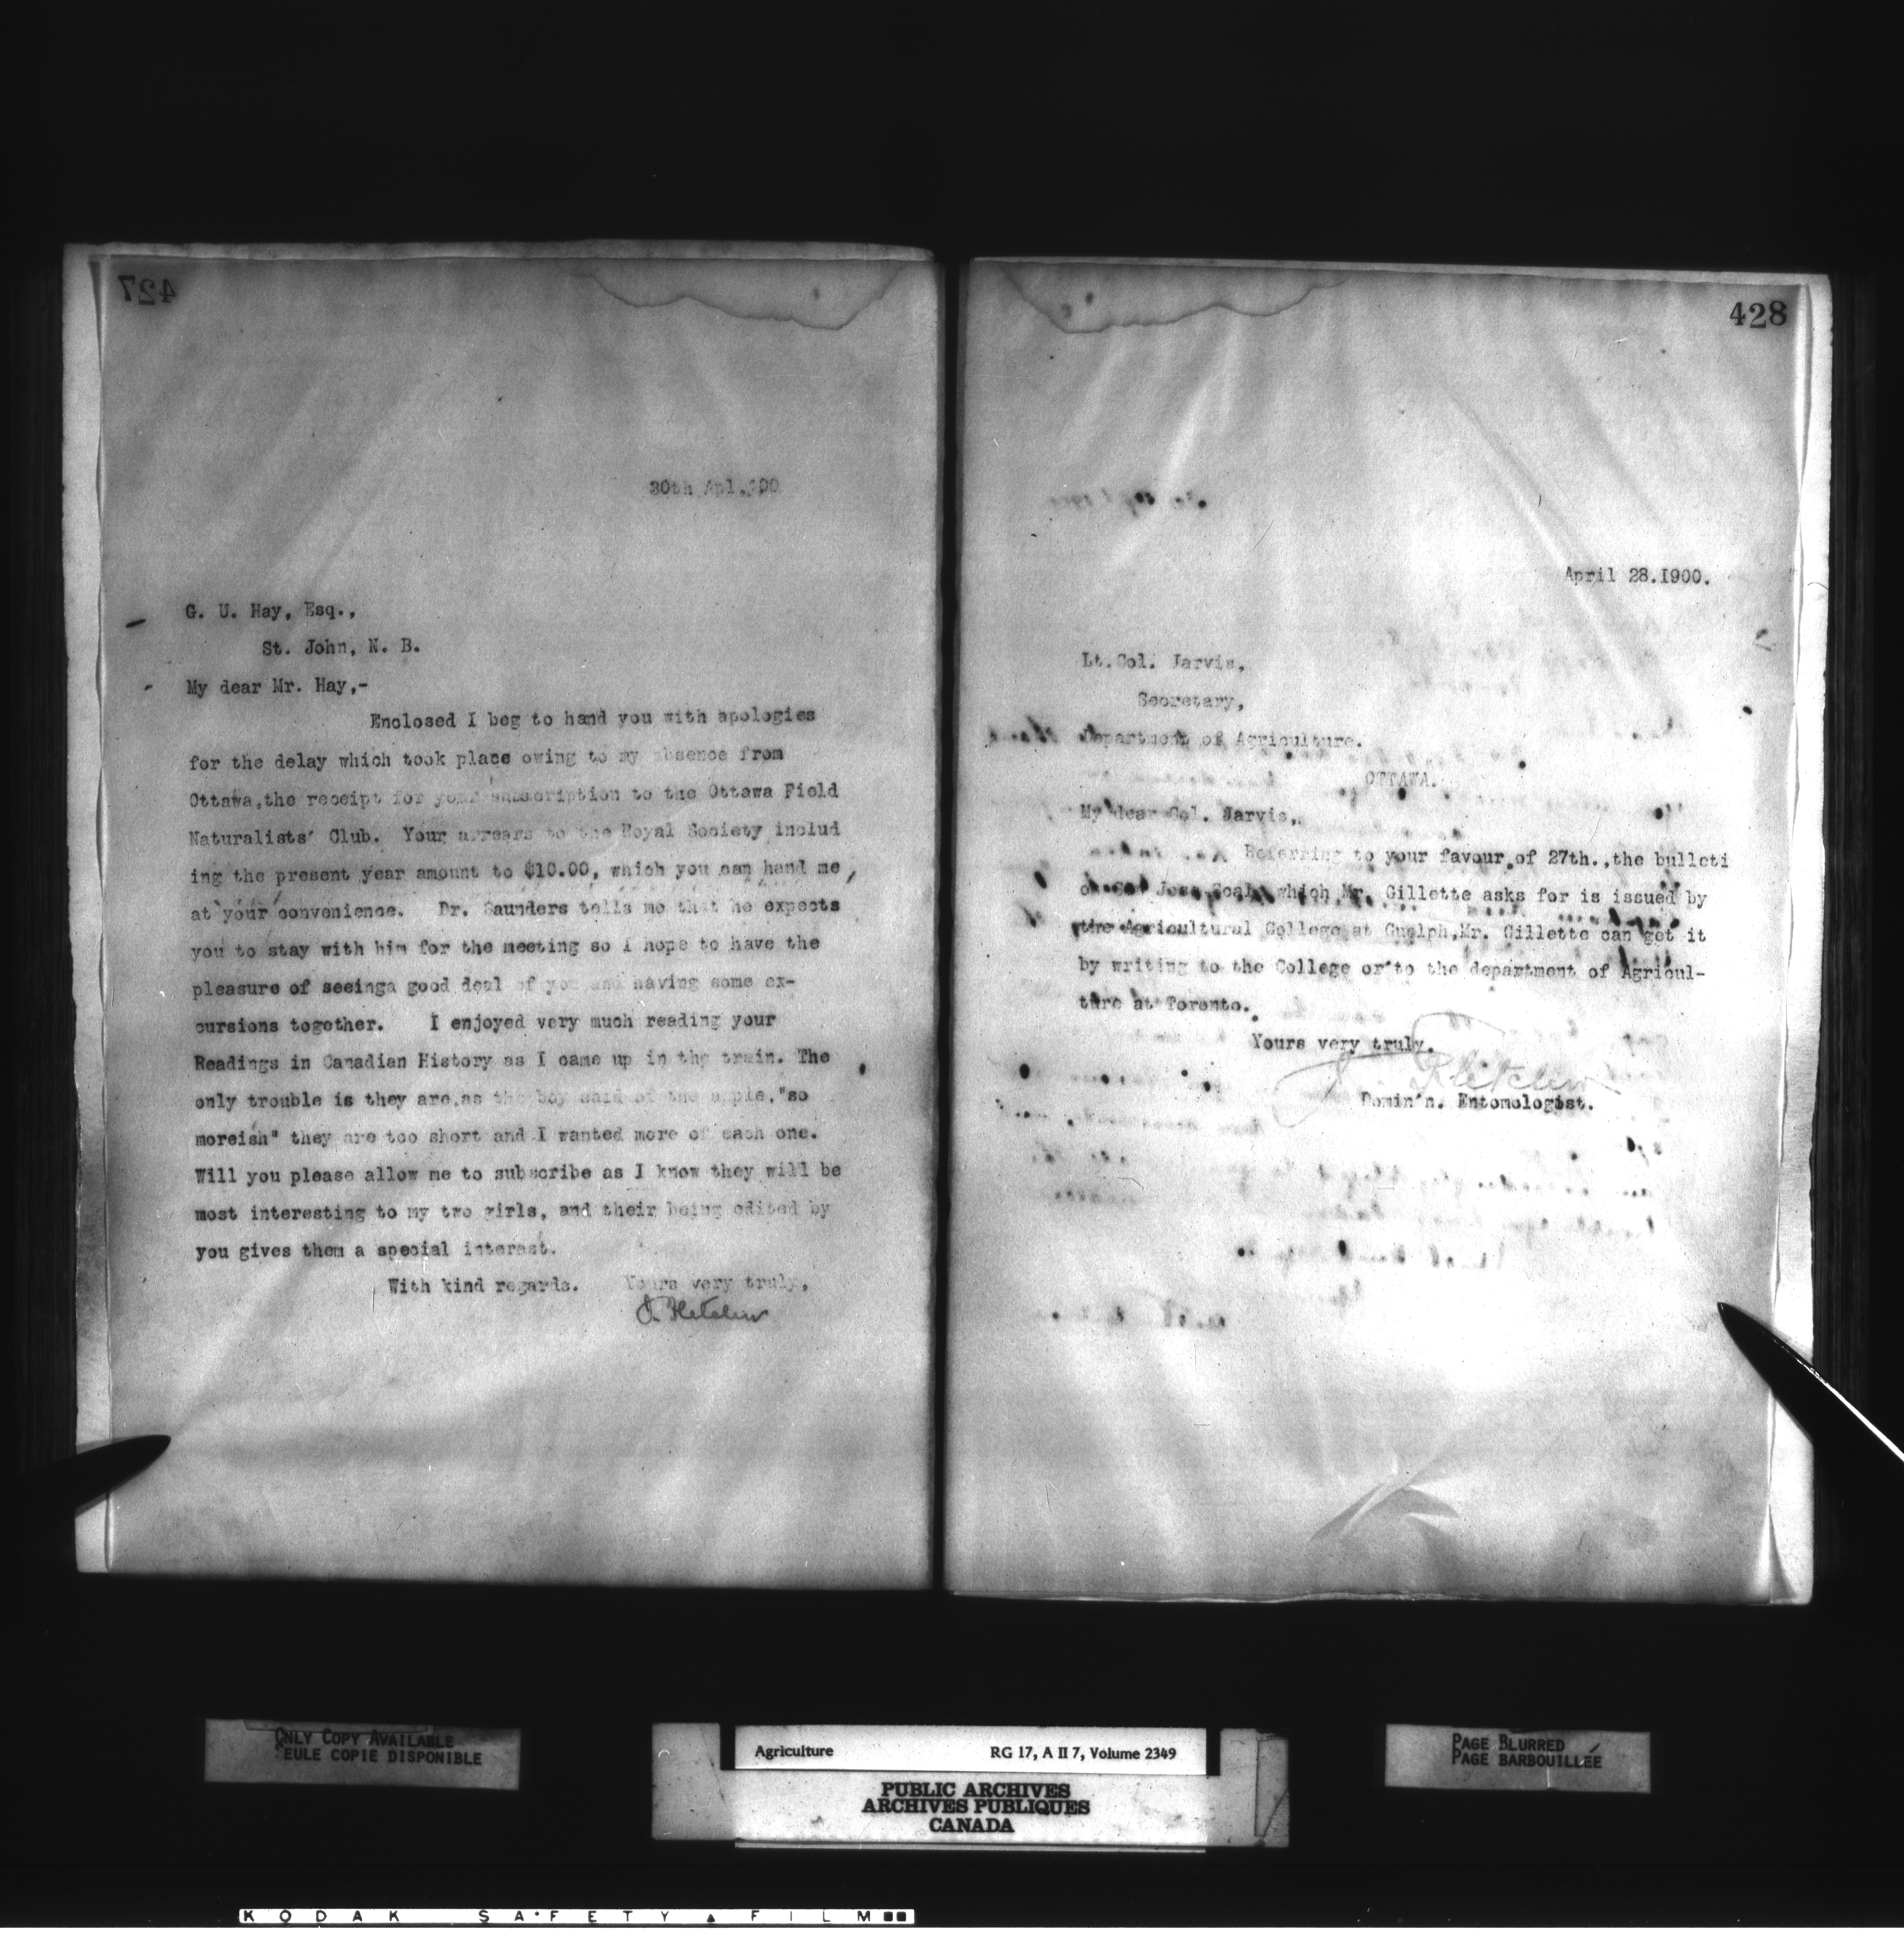 427
30th Apl.,'00
G. U. Hay, Esq.,
St. John, N. B.
My dear Mr. Hay,-
Enclosed I beg to hand you with apologies
for the delay which took place owing to my absence from
Ottawa,the receipt for your subscription to the Ottawa Field
Naturalists' Club. Your arrears to the Royal Society includ
ing the present year amount to $10.00, which you can hand me,
at your convenience. Dr. Saunders tells me that he expects
you to stay with him for the meeting so I hope to have the
pleasure of seeinga good deal of you and having some ex-
cursions together. I enjoyed very much reading your
Readings in Canadian History as I came up in the train. The
only trouble is they are,as the boy said of the apple,"so
moreish" they are too short and I wanted more of each one.
Will you please allow me to subscribe as I know they will be
most interesting to my two girls, and their being edited by
you gives them a special interest.
With kind regards. Yours very truly,
J. Fletcher
428
April 28.I900.
Lt.Col. Jarvis,
Secretary,
Department of Agriculture.
OTTAWA.
My dear Col. Jarvis,
Referring to your favour of 27th.,the bulleti
on San Jose Scale which Mr. Gillette asks for is issued by
the Agricultural College at Guelph,Mr. Gillette can get it
by writing to the College or to the department of Agricul-
ture at Toronto.
Yours very truly.
J. Fletcher
Domin'n. Entomologist.
ONLY COPY AVAILABLE
SEULE COPIE DISPONIBLE
Agriculture RG 17, A II 7, Volume 2349
PUBLIC ARCHIVES
ARCHIVES PUBLIQUES
CANADA
PAGE BLURRED
PAGE BARBOUILLÉE
KODAK SAFETY FILM